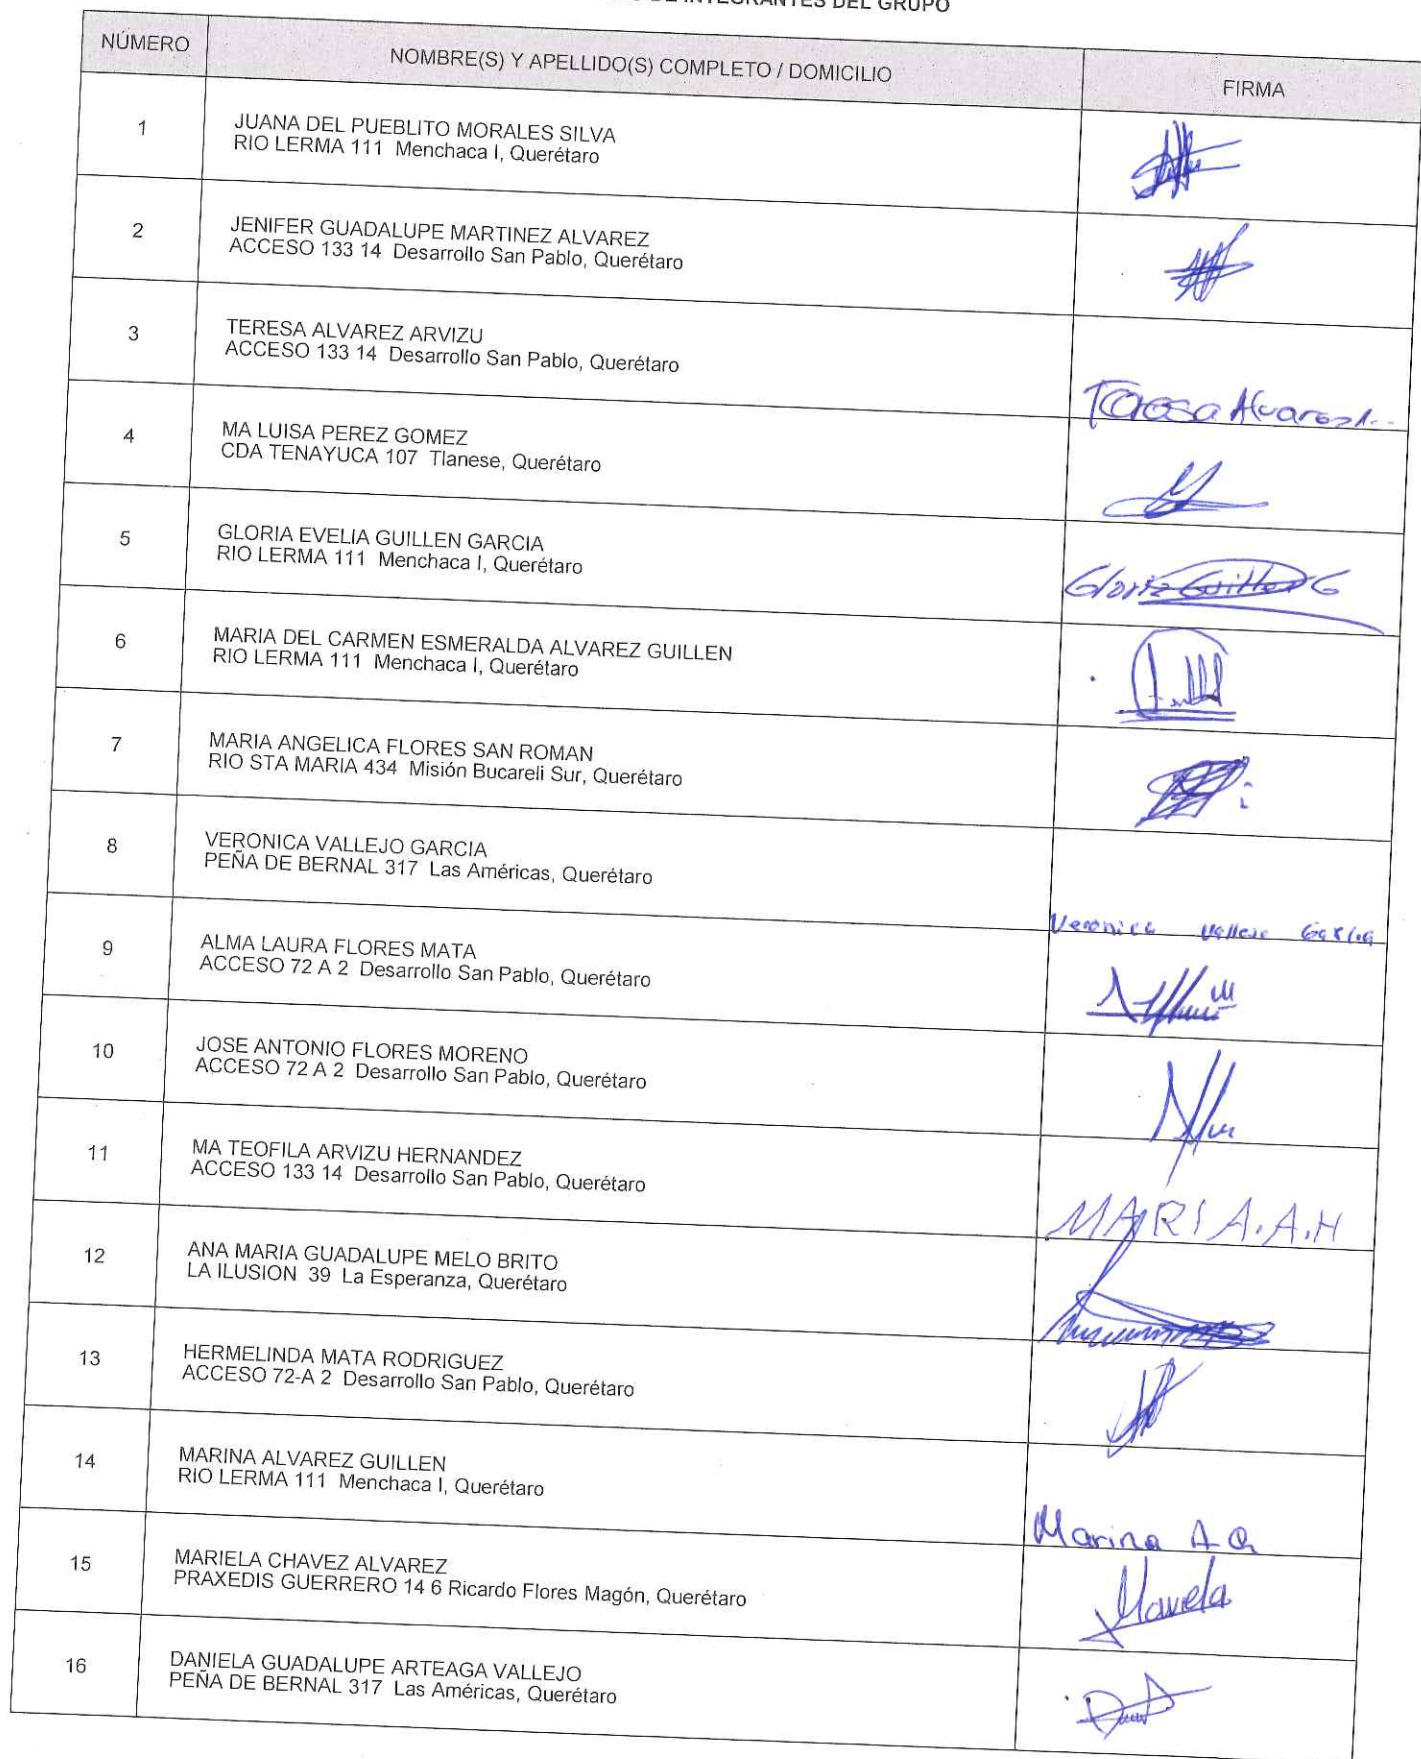 DE INTEGRANTES DEL GRUPO
NÚMERO NOMBRE(S) Y APELLIDO(S) COMPLETO / DOMICILIO FIRMA
1 JUANA DEL PUEBLITO MORALES SILVA
RIO LERMA 111 Menchaca I, Querétaro
2 JENIFER GUADALUPE MARTINEZ ALVAREZ
ACCESO 133 14 Desarrollo San Pablo, Querétaro
3 TERESA ALVAREZ ARVIZU
ACCESO 133 14 Desarrollo San Pablo, Querétaro
Teresa Alvarez A..
4 MA LUISA PEREZ GOMEZ
CDA TENAYUCA 107 Tlanese, Querétaro
5 GLORIA EVELIA GUILLEN GARCIA
RIO LERMA 111 Menchaca I, Querétaro
Gloria Guillen G
6 MARIA DEL CARMEN ESMERALDA ALVAREZ GUILLEN
RIO LERMA 111 Menchaca I, Querétaro
7 MARIA ANGELICA FLORES SAN ROMAN
RIO STA MARIA 434 Misión Bucareli Sur, Querétaro
8 VERONICA VALLEJO GARCIA
PEÑA DE BERNAL 317 Las Américas, Querétaro
Veronica Vallejo Garcia
9 ALMA LAURA FLORES MATA
ACCESO 72 A 2 Desarrollo San Pablo, Querétaro
10 JOSE ANTONIO FLORES MORENO
ACCESO 72 A 2 Desarrollo San Pablo, Querétaro
11 MA TEOFILA ARVIZU HERNANDEZ
ACCESO 133 14 Desarrollo San Pablo, Querétaro
MARIA.A.H
12 ANA MARIA GUADALUPE MELO BRITO
LA ILUSION 39 La Esperanza, Querétaro
13 HERMELINDA MATA RODRIGUEZ
ACCESO 72-A 2 Desarrollo San Pablo, Querétaro
14 MARINA ALVAREZ GUILLEN
RIO LERMA 111 Menchaca I, Querétaro
Marina A G
15 MARIELA CHAVEZ ALVAREZ
PRAXEDIS GUERRERO 14 6 Ricardo Flores Magón, Querétaro
Mariela
16 DANIELA GUADALUPE ARTEAGA VALLEJO
PEÑA DE BERNAL 317 Las Américas, Querétaro